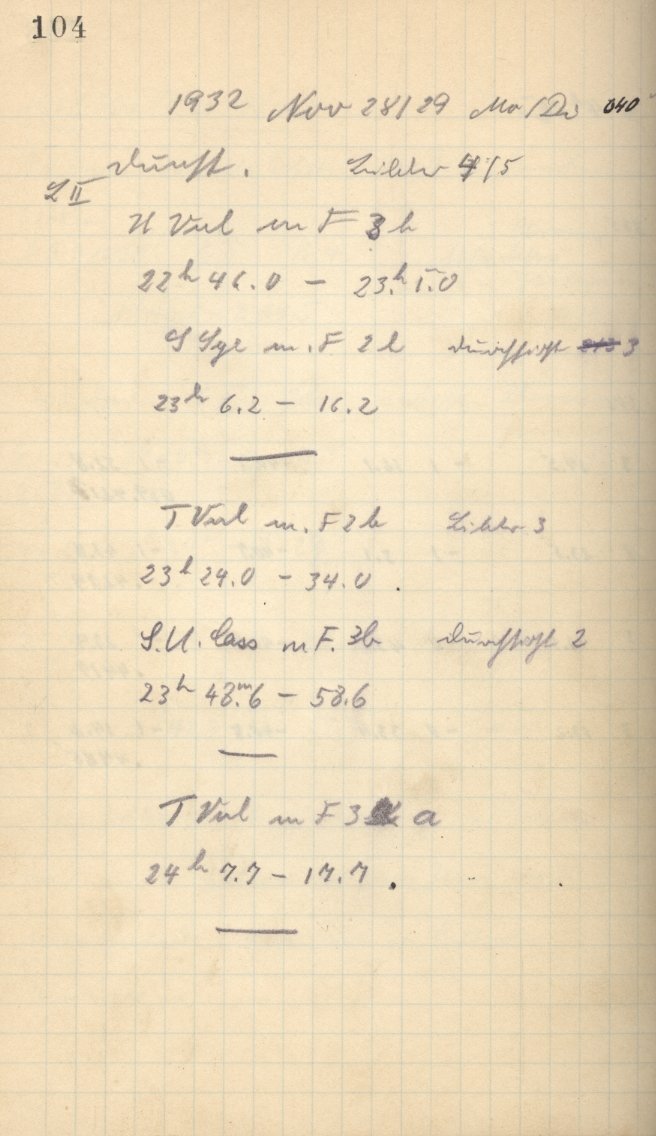 104
1932 Nov 28/29 Mo/Di 040
dunst. Bilder 4/5
L II
U Vul m F 3 b
22h 46.0 – 23h 1.0
S Sge m. F 2 b Durchsicht 3
23h 6.2 – 16.2
T Vul m. F 2 b Bilder 3
23h 24.0 – 34.0.
S.U. Cass m F. 3b Durchsicht 2
23h 48m.6 – 58.6
T Vul m F 3 a
24h 7.7 – 17.7.